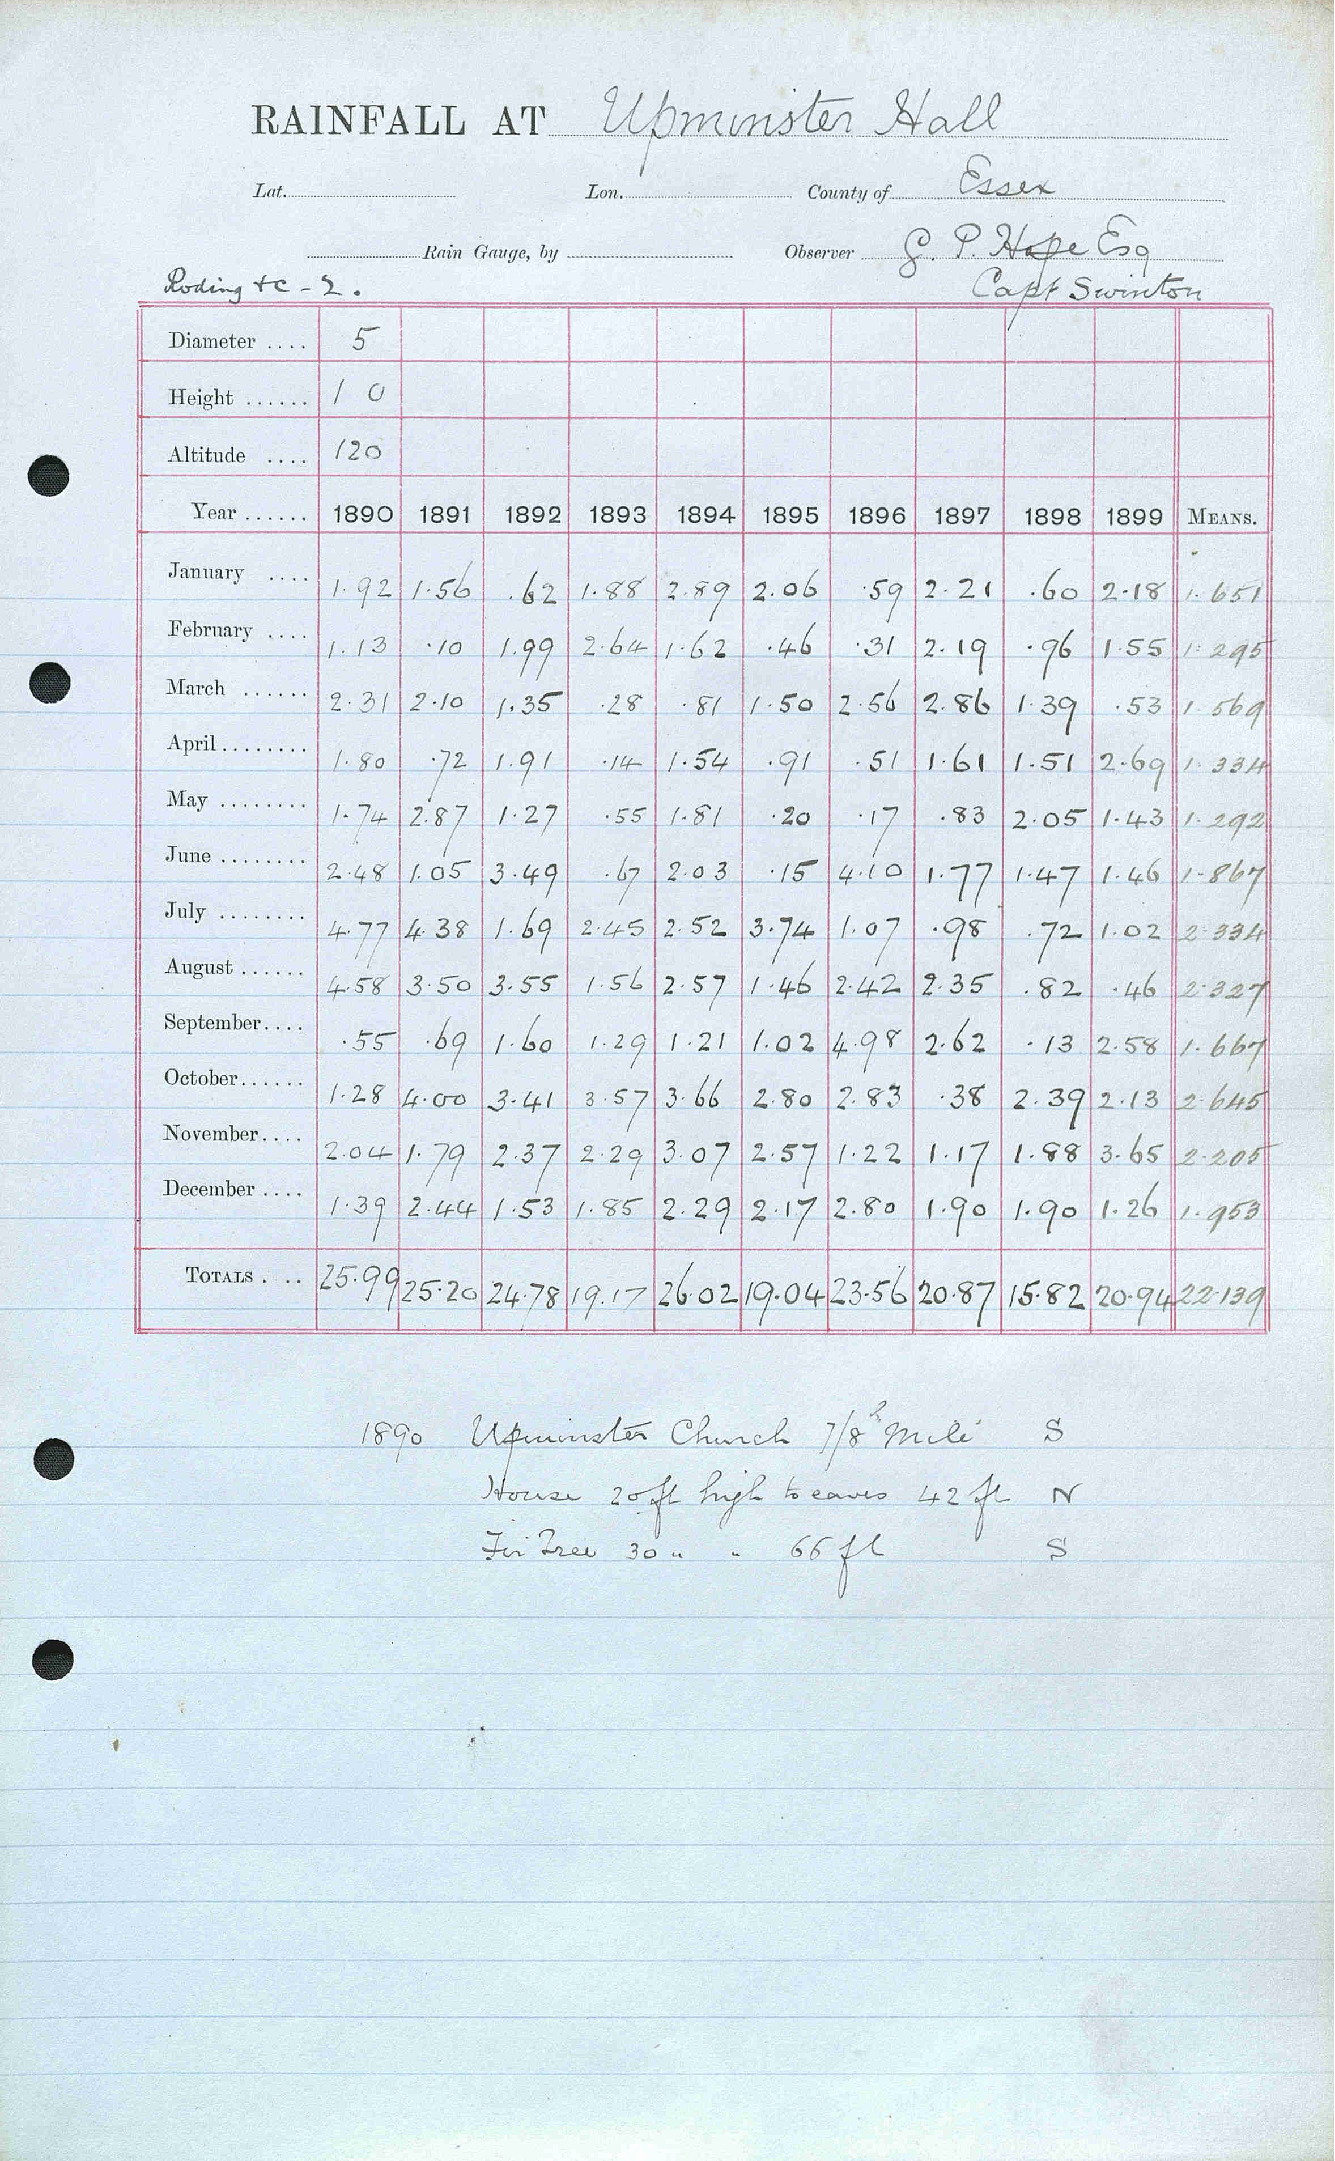 RAINFALL AT Upminster Hall
Lat. Lon. County of Essex
Rain Gauge, by Observer G. P. Hope Esq
Roding &c - 2. Capt Swinton
Diameter .... 5
Height ...... 1 0
Altitude .... 120
Year ...... 1890 1891 1892 1893 1894 1895 1896 1897 1898 1899 MEANS.
January .... 1.92 1.56 .62 1.88 2.89 2.06 .59 2.21 .60 2.18 1.651
February .... 1.13 .10 1.99 2.64 1.62 .46 .31 2.19 .96 1.55 1.295
March ...... 2.31 2.10 1.35 .28 .81 1.50 2.56 2.86 1.39 .53 1.569
April........ 1.80 .72 1.91 .14 1.54 .91 .51 1.61 1.51 2.69 1.334
May ........ 1.74 2.87 1.27 .55 1.81 .20 .17 .83 2.05 1.43 1.292
June ........ 2.48 1.05 3.49 .67 2.03 .15 4.10 1.77 1.47 1.46 1.867
July ........ 4.77 4.38 1.69 2.45 2.52 3.74 1.07 .98 .72 1.02 2.334
August ...... 4.58 3.50 3.55 1.56 2.57 1.46 2.42 2.35 .82 .46 2.327
September.... .55 .69 1.60 1.29 1.21 1.02 4.98 2.62 .13 2.58 1.667
October...... 1.28 4.00 3.41 3.57 3.66 2.80 2.83 .38 2.39 2.13 2.645
November.... 2.04 1.79 2.37 2.29 3.07 2.57 1.22 1.17 1.88 3.65 2.205
December .... 1.39 2.44 1.53 1.85 2.29 2.17 2.80 1.90 1.90 1.26 1.953
TOTALS . .. 25.99 25.20 24.78 19.17 26.02 19.04 23.56 20.87 15.82 20.94 22.139
1890 Upminster Church 7/8 h Mile S
House 20 ft high to eaves 42 ft N
Fir Tree 30 " " 66 ft S